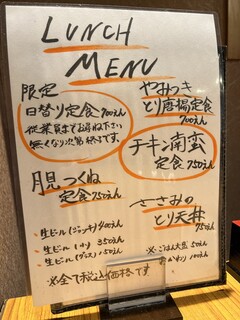 LUNCH
MENU
限定
日替り定食 700えん
従業員までお尋ね下さい
無くなり次第終了です。
やみつき
とり唐揚定食
700えん
チキン南蛮
定食 750えん
月見つくね
定食 750えん
ささみの
とり天丼
750えん
・生ビール(ジョッキ) 400えん
・生ビール(小) 350えん
・生ビール(グラス) 150えん
※ごはん大盛 50えん
おかわり 100えん
※全て税込価格です